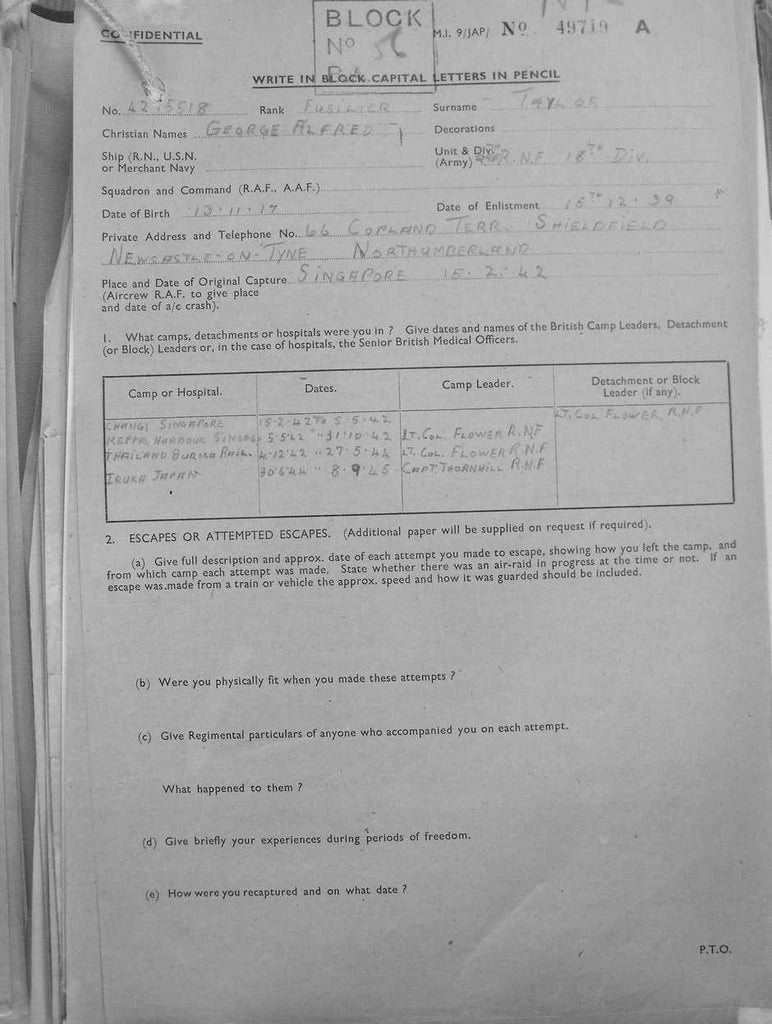 BLOCK
No 56
CONFIDENTIAL M.I. 9/JAP/ No 49719 A
WRITE IN BLOCK CAPITAL LETTERS IN PENCIL
No. 4275518 Rank FUSILIER Surname TAYLOR
Christian Names GEORGE ALFRED Decorations
Ship (R.N., U.S.N. or Merchant Navy
Unit & Div. (Army) 9TH R.N.F 18TH DIV.
Squadron and Command (R.A.F., A.A.F.)
Date of Birth 13.11.17 Date of Enlistment 15TH 12.39
Private Address and Telephone No. 66 COPLAND TERR. SHIELDFIELD
NEWCASTLE-ON-TYNE NORTHUMBERLAND
Place and Date of Original Capture SINGAPORE 15.2.42
(Aircrew R.A.F. to give place
and date of a/c crash).
1. What camps, detachments or hospitals were you in ? Give dates and names of the British Camp Leaders, Detachment
(or Block) Leaders or, in the case of hospitals, the Senior British Medical Officers.
Camp or Hospital. Dates. Camp Leader. Detachment or Block Leader (if any).
CHANGI SINGAPORE 15.2.42 TO 5.5.42 LT. COL FLOWER R.N.F
HARBOUR 5.5.42 " 31.10.42 LT. COL. FLOWER R.NF
THAILAND BURMA RAIL. 4.12.42 " 27.5.44 LT. COL. FLOWER R.N.F
IRUKA JAPAN 30.6.44 " 8.9.45 CAPT. THORNHILL R.N.F
2. ESCAPES OR ATTEMPTED ESCAPES. (Additional paper will be supplied on request if required).
(a) Give full description and approx. date of each attempt you made to escape, showing how you left the camp, and
from which camp each attempt was made. State whether there was an air-raid in progress at the time or not. If an
escape was made from a train or vehicle the approx. speed and how it was guarded should be included.
(b) Were you physically fit when you made these attempts ?
(c) Give Regimental particulars of anyone who accompanied you on each attempt.
What happened to them ?
(d) Give briefly your experiences during periods of freedom.
(e) How were you recaptured and on what date ?
P.T.O.